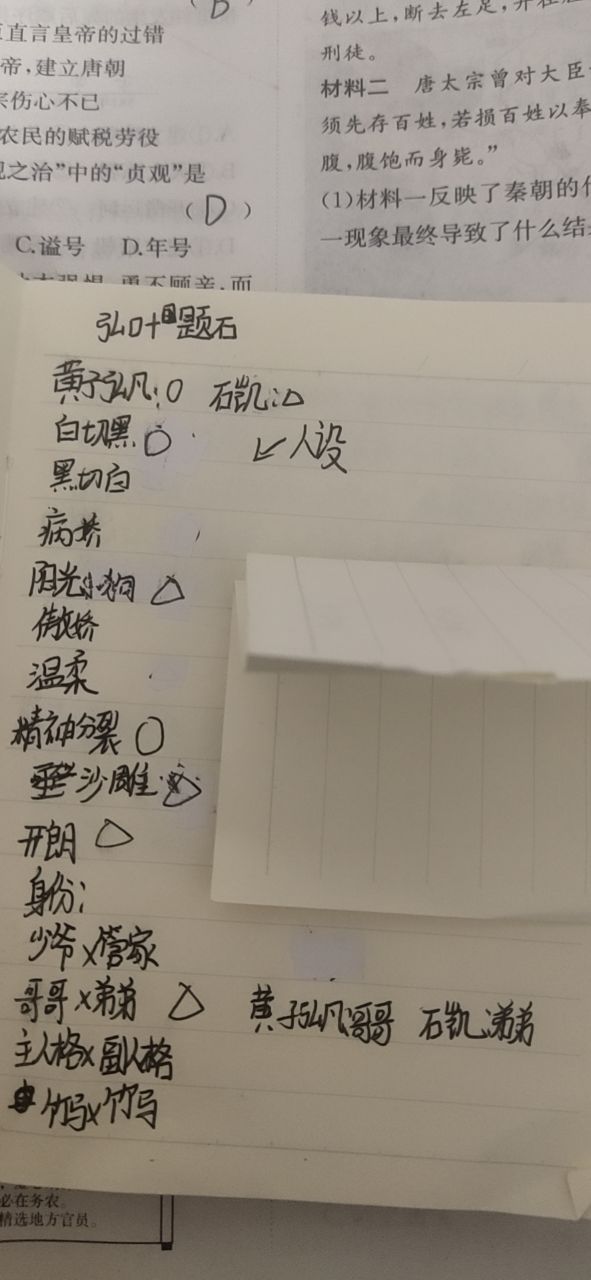 直言皇帝的过错
帝，建立唐朝
宗伤心不已
农民的赋税劳役
之治”中的“贞观”是
（D）
C.谥号 D.年号
钱以上，断去左足，
刑徒。
材料二 唐太宗曾对大臣
须先存百姓，若损百姓以奉
腹，腹饱而身毙。”
(1)材料一反映了秦朝的
一现象最终导致了什么结
题石
黄子弘凡：○ 石凯：△
白切黑 ○
↙人设
黑切白
病娇
阳光小狗 △
傲娇
温柔
精神分裂 ○
沙雕 △
开朗 △
身份：
少爷×管家
哥哥×弟弟 △ 黄子弘凡：哥哥 石凯：弟弟
主人格×副人格
竹马×竹马
必在务农。
精选地方官员。